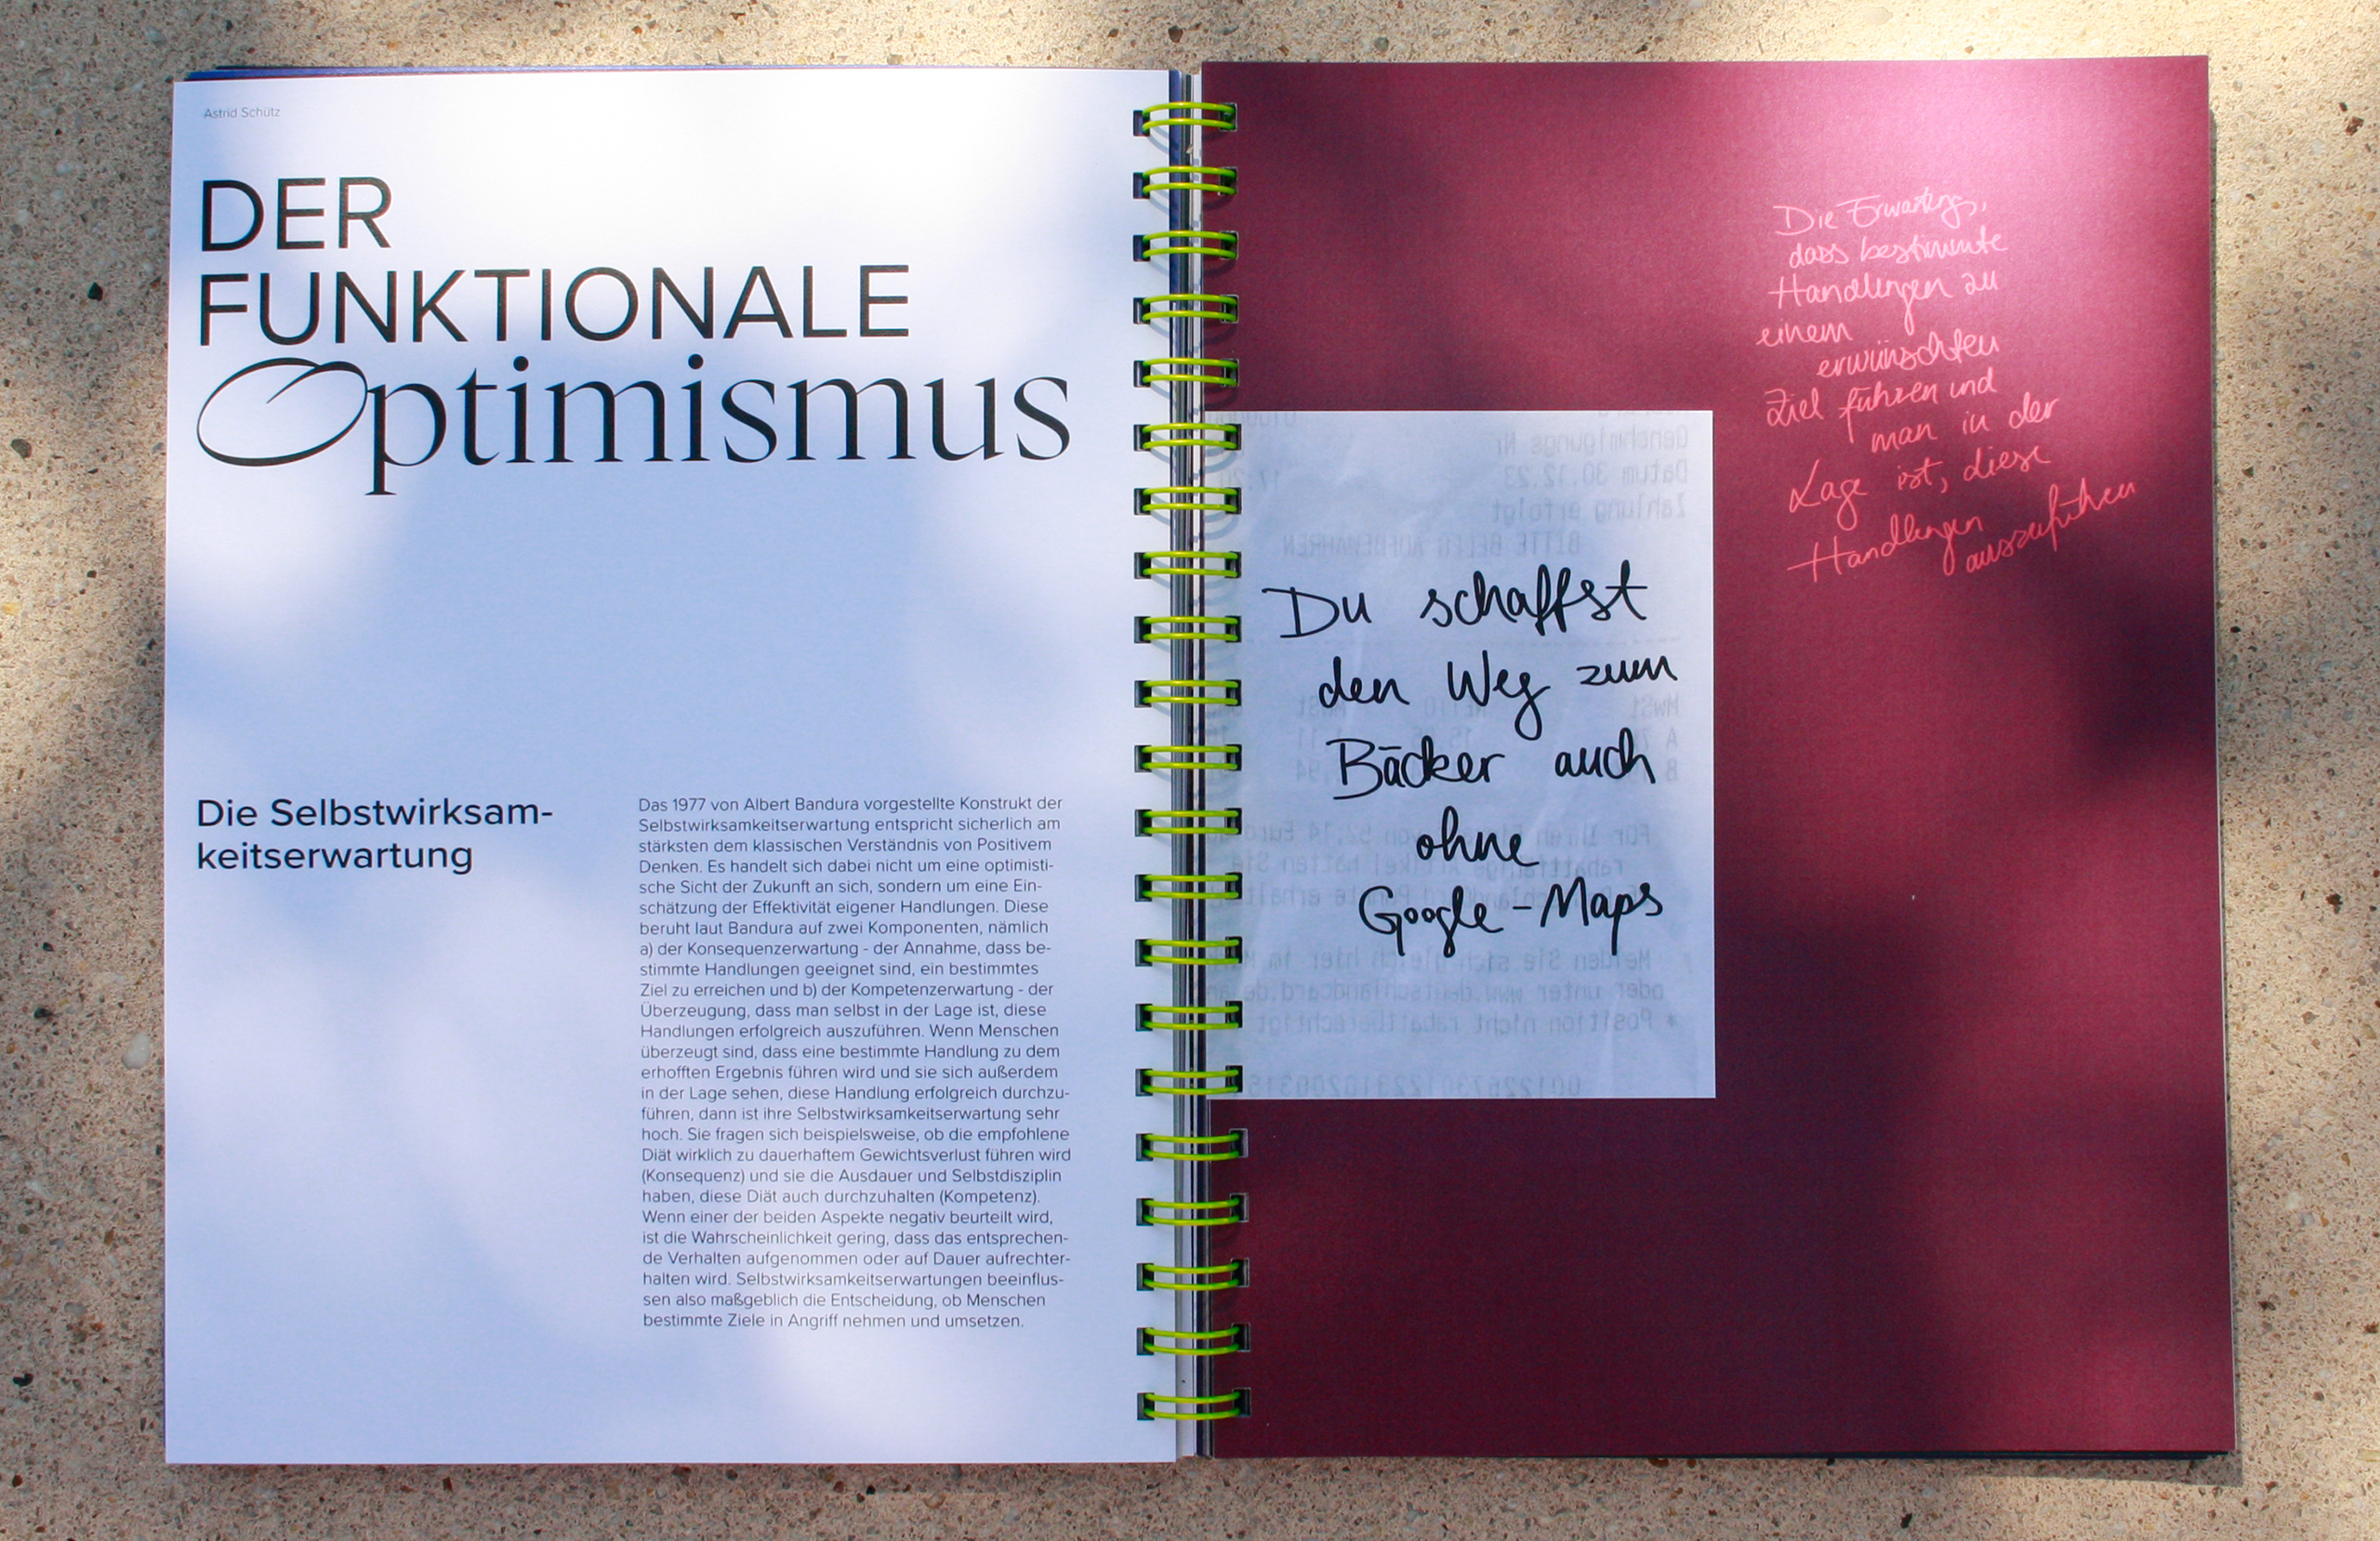 Astrid Schütz
DER
FUNKTIONALE
Optimismus
Die Selbstwirksam-
keitserwartung
Das 1977 von Albert Bandura vorgestellte Konstrukt der
Selbstwirksamkeitserwartung entspricht sicherlich am
stärksten dem klassischen Verständnis von Positivem
Denken. Es handelt sich dabei nicht um eine optimisti-
sche Sicht der Zukunft an sich, sondern um eine Ein-
schätzung der Effektivität eigener Handlungen. Diese
beruht laut Bandura auf zwei Komponenten, nämlich
a) der Konsequenzerwartung - der Annahme, dass be-
stimmte Handlungen geeignet sind, ein bestimmtes
Ziel zu erreichen und b) der Kompetenzerwartung - der
Überzeugung, dass man selbst in der Lage ist, diese
Handlungen erfolgreich auszuführen. Wenn Menschen
überzeugt sind, dass eine bestimmte Handlung zu dem
erhofften Ergebnis führen wird und sie sich außerdem
in der Lage sehen, diese Handlung erfolgreich durchzu-
führen, dann ist ihre Selbstwirksamkeitserwartung sehr
hoch. Sie fragen sich beispielsweise, ob die empfohlene
Diät wirklich zu dauerhaftem Gewichtsverlust führen wird
(Konsequenz) und sie die Ausdauer und Selbstdisziplin
haben, diese Diät auch durchzuhalten (Kompetenz).
Wenn einer der beiden Aspekte negativ beurteilt wird,
ist die Wahrscheinlichkeit gering, dass das entsprechen-
de Verhalten aufgenommen oder auf Dauer aufrechter-
halten wird. Selbstwirksamkeitserwartungen beeinflus-
sen also maßgeblich die Entscheidung, ob Menschen
bestimmte Ziele in Angriff nehmen und umsetzen.
Die Erwartung,
dass bestimmte
Handlungen zu
einem
erwünschten
Ziel führen und
man in der
Lage ist, diese
Handlungen
auszuführen
Genehmigungs Nr
Datum 30.12.23
Zahlung erfolgt
BITTE BELEG AUFBEWAHREN
Du schaffst
den Weg zum
Bäcker auch
ohne
Google-Maps
MwSt
Melden Sie sich gleich hier im
oder unter www.deutschlandcard.de
* Position nicht rabattberechtigt